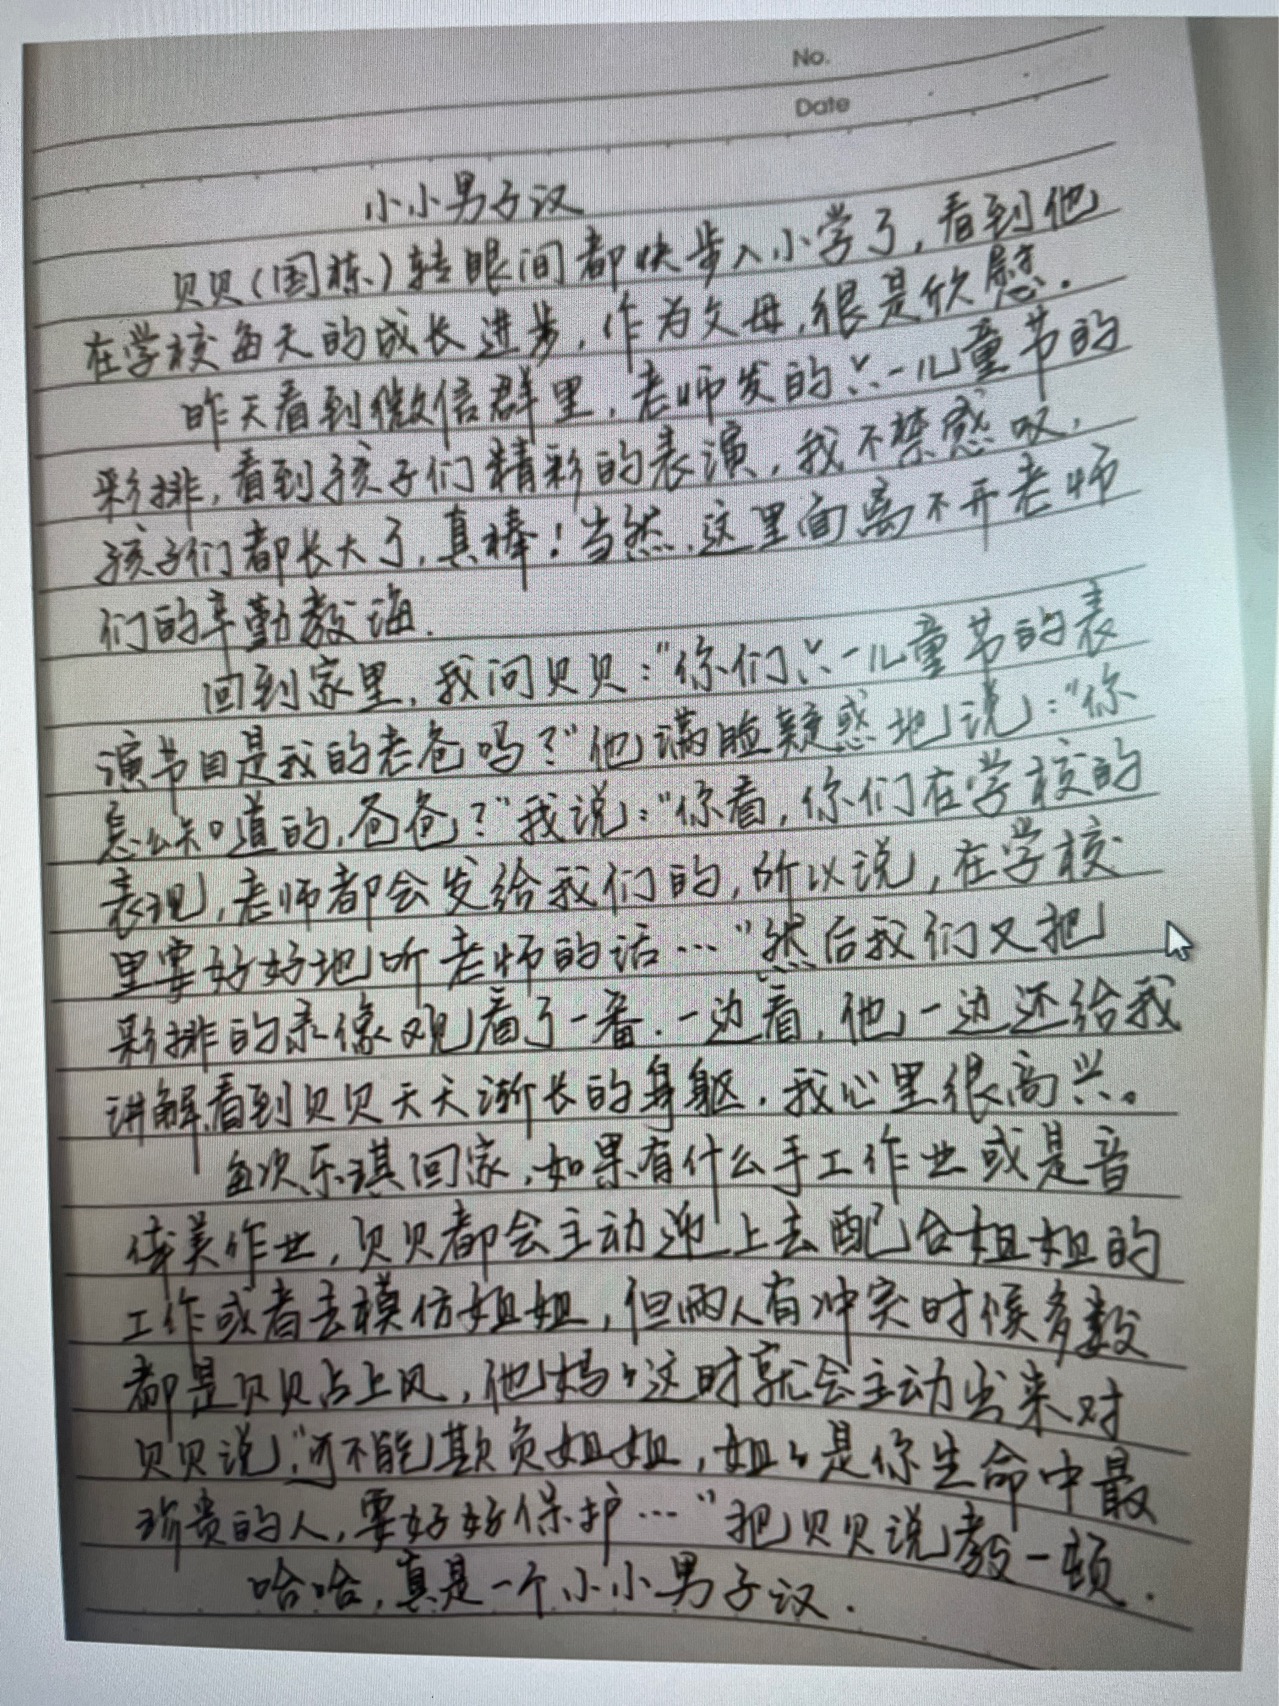 No.
Date
小小男子汉
贝贝(国栋)转眼间都快步入小学了,看到他
在学校每天的成长进步,作为父母,很是欣慰.
昨天看到微信群里,老师发的六一儿童节的
彩排,看到孩子们精彩的表演,我不禁感叹,
孩子们都长大了,真棒!当然,这里面离不开老师
们的辛勤教诲.
回到家里,我问贝贝:"你们六一儿童节的表
演节目是我的老爸吗?"他满脸疑惑地说:"你
怎么知道的,爸爸?"我说:"你看,你们在学校的
表现,老师都会发给我们的,所以说,在学校
里要好好地听老师的话…"然后我们又把
彩排的录像观看了一番.一边看,他一边还给我
讲解,看到贝贝天天渐长的身躯,我心里很高兴。
每次乐琪回家,如果有什么手工作业或是音
体美作业,贝贝都会主动迎上去配合姐姐的
工作或者去模仿姐姐,但两人有冲突时候多数
都是贝贝占上风,他妈々这时就会主动出来对
贝贝说:"可不能欺负姐姐,姐々是你生命中最
珍贵的人,要好好保护…"把贝贝说教一顿.
哈哈,真是一个小小男子汉.